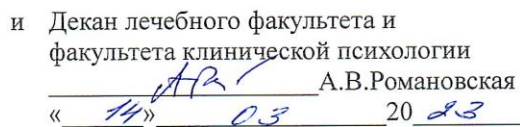 и Декан лечебного факультета и
факультета клинической психологии
А.В.Романовская
« 14 » 03 20 23